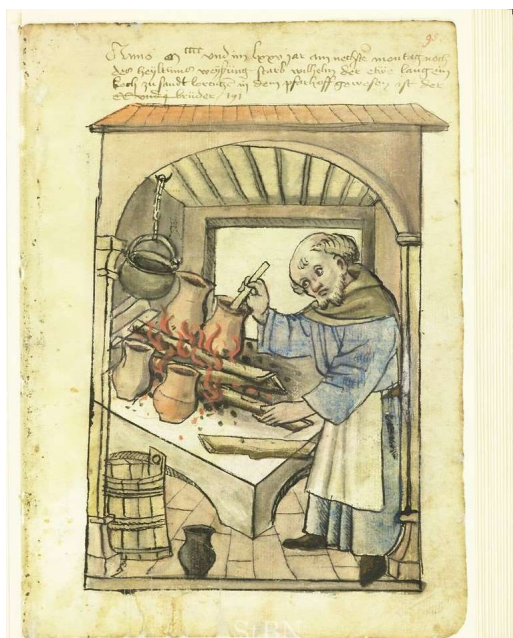 98
Anno m cccc vnd im lxxv jar am nechste montag noch
des heyltums weyßung starb wilhelm der etwe lang ein
koch zu sandt lorentzn in dem pfarhoff gewesen ist der
bruder / 191
StBN